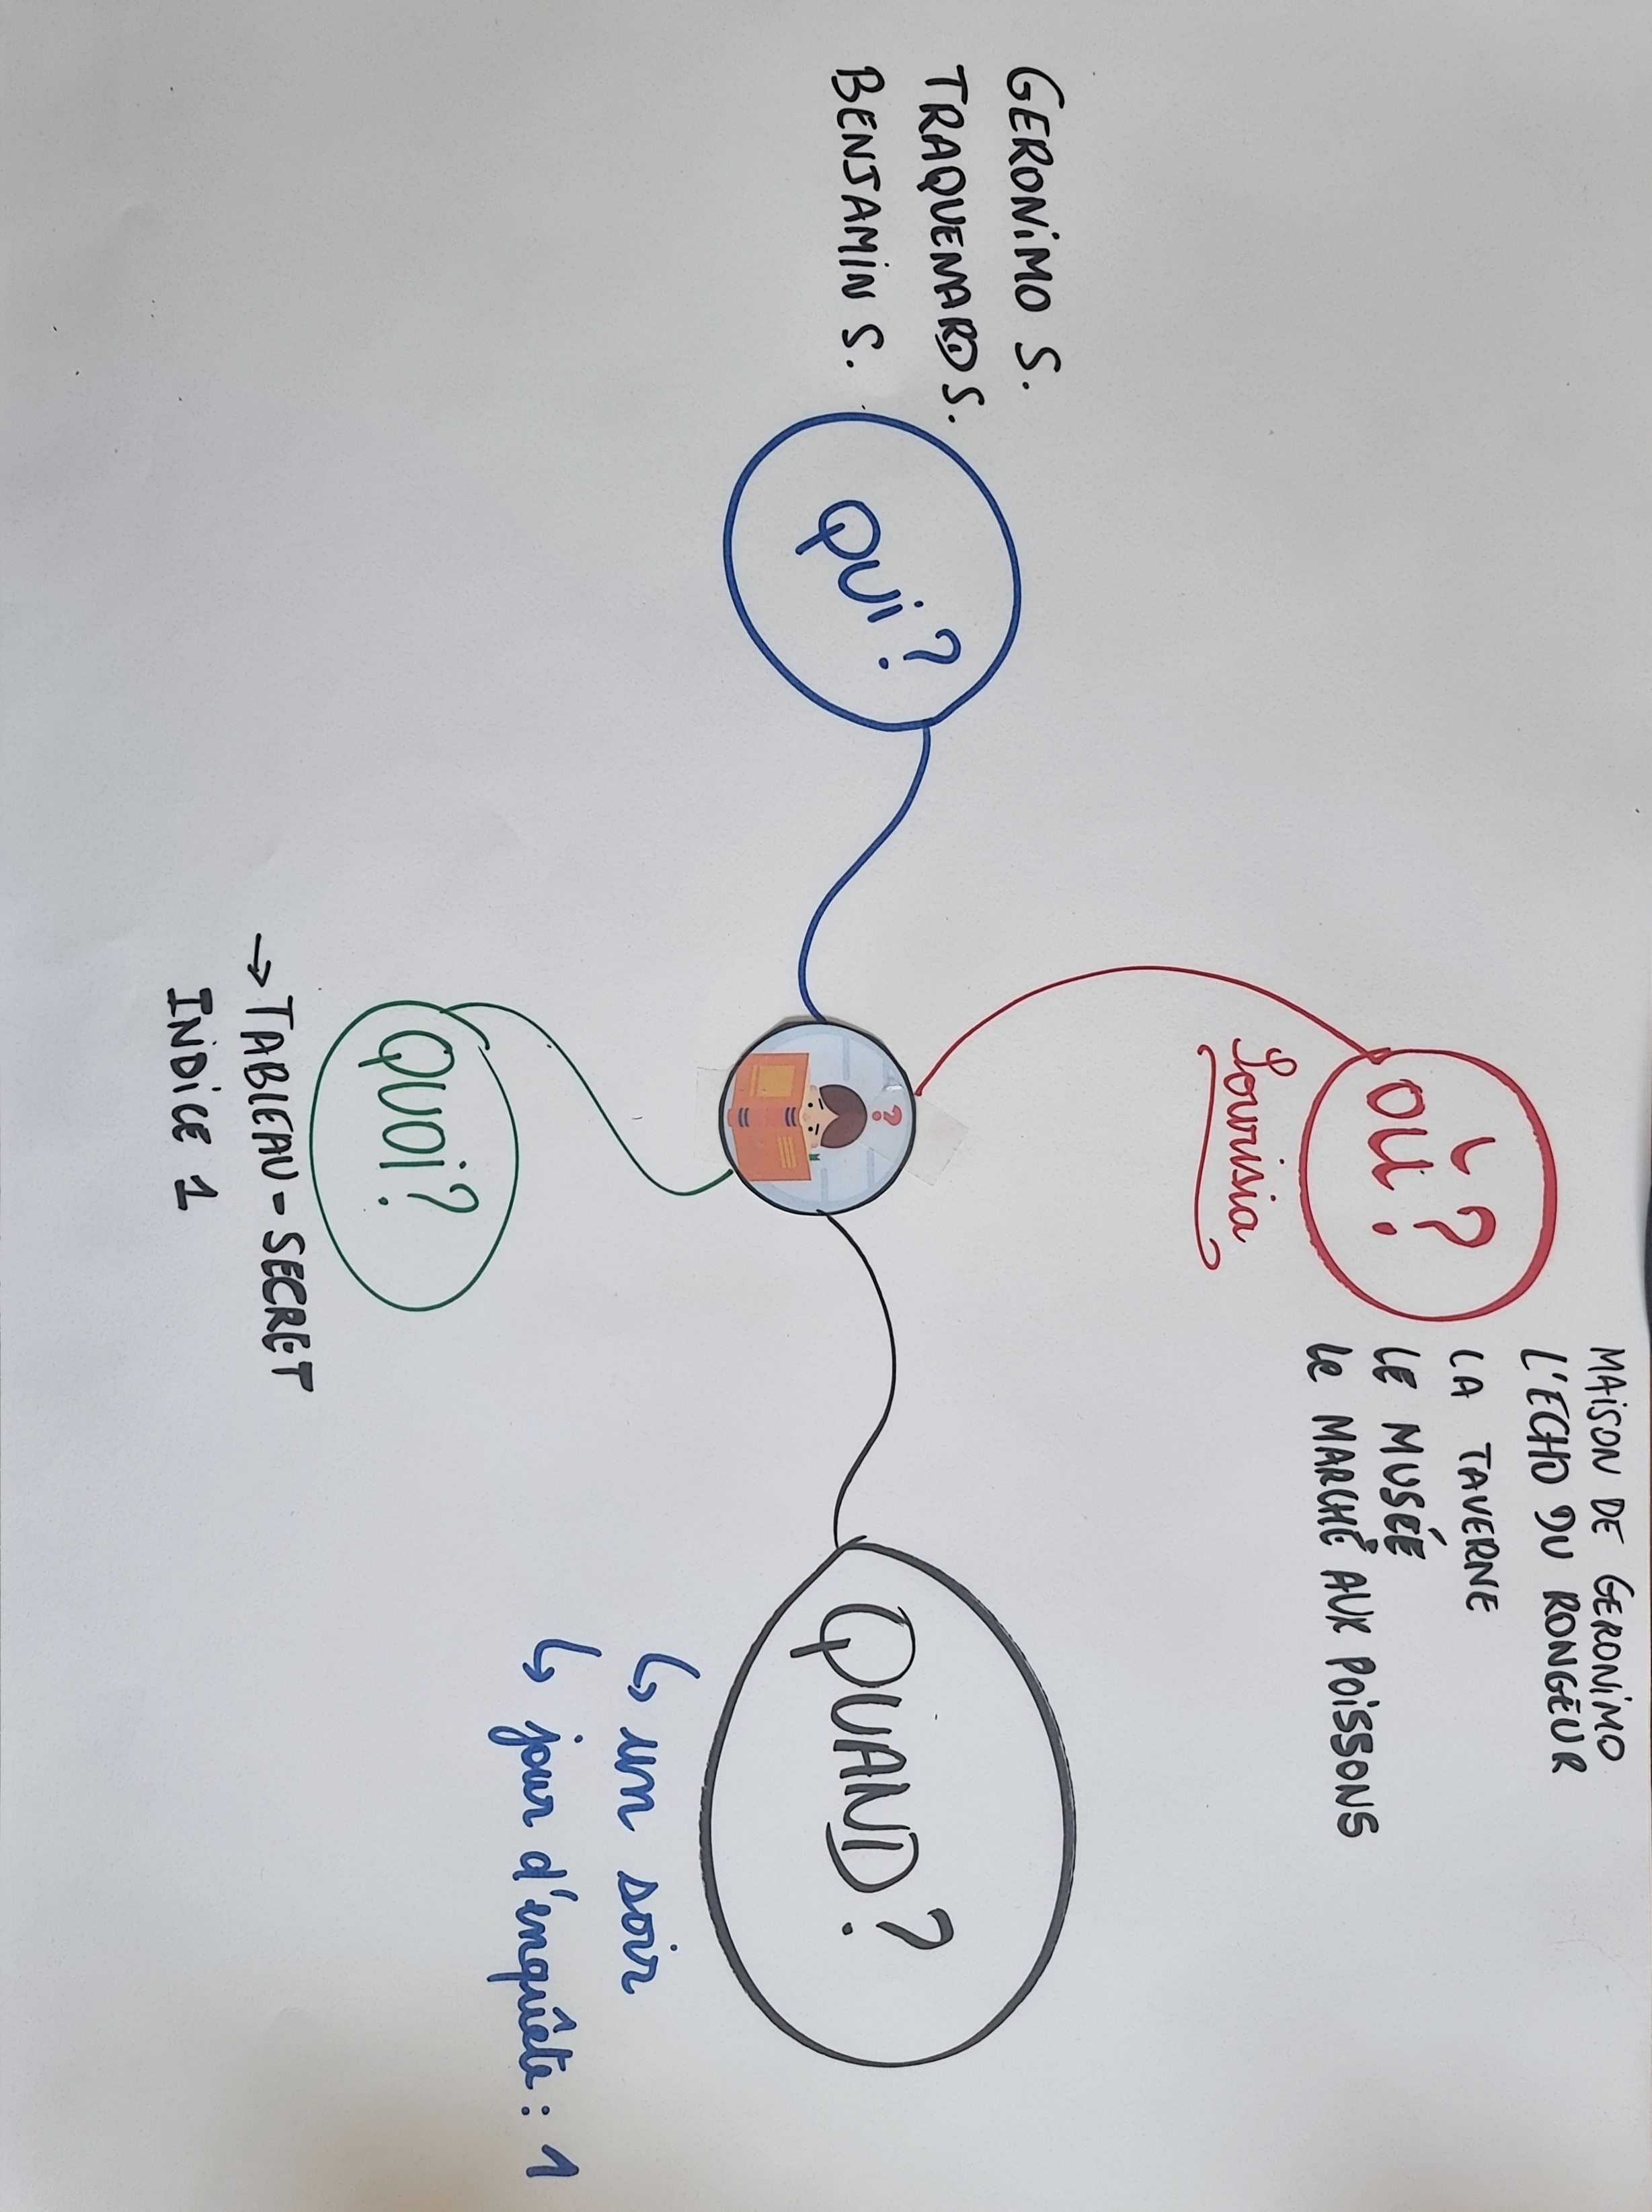 OÙ?
Sourisia
MAISON DE GERONIMO
L'ECHO DU RONGEUR
LA TAVERNE
LE MUSÉE
LE MARCHÉ AUX POISSONS
GERONIMO S.
TRAQUENARD S.
BENJAMIN S.
QUI?
?
QUAND?
↳ un soir
↳ jour d'enquête : 1
QUOI?
→ TABLEAU-SECRET
INDICE 1